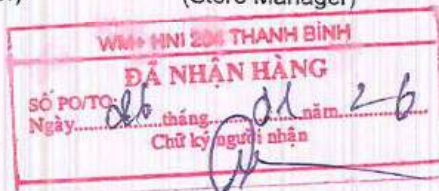 (Store Manager)
WM+ HNI 206 THANH BÌNH
ĐÃ NHẬN HÀNG
SỐ PO/TO:
Ngày.......06.......tháng.......01.......năm 26
Chữ ký người nhận